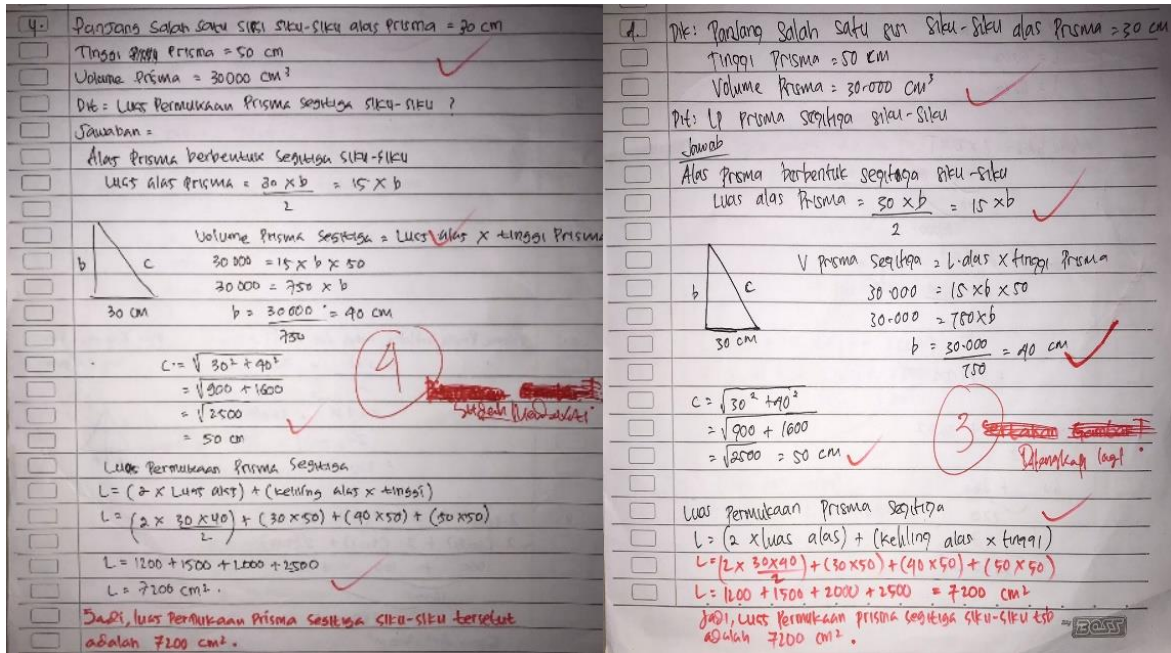 4. Panjang salah satu sisi siku-siku alas prisma = 30 cm
Tinggi prisma = 50 cm
Volume Prisma = 30000 cm³
Dit = Luas Permukaan Prisma segitiga siku-siku ?
Jawaban =
Alas Prisma berbentuk segitiga siku-siku
Luas alas prisma = 30 × b / 2 = 15 × b
Volume Prisma segitiga = Luas alas × tinggi Prisma
30 000 = 15 × b × 50
30 000 = 750 × b
b = 30 000 / 750 = 40 cm
b
c
30 cm
c = √30² + 40²
= √900 + 1600
= √2500
= 50 cm
4
Sudah
Luas Permukaan Prisma Segitiga
L = (2 × Luas alas) + (keliling alas × tinggi)
L = (2 × 30 × 40 / 2) + (30 × 50) + (40 × 50) + (50 × 50)
L = 1200 + 1500 + 2000 + 2500
L = 7200 cm².
Jadi, luas Permukaan Prisma segitiga siku-siku tersebut
adalah 7200 cm².
Dik: Panjang Salah satu sisi siku-siku alas Prisma = 30 cm
Tinggi Prisma = 50 cm
Volume Prisma = 30.000 cm³
Dit: Lp prisma segitiga siku-siku
Jawab
Alas Prisma berbentuk segitiga siku-siku
Luas alas Prisma = 30 × b / 2 = 15 × b
V prisma segitiga = L.alas × tinggi Prisma
30.000 = 15 × b × 50
30.000 = 750 × b
b = 30.000 / 750 = 40 cm
b
c
30 cm
c = √30² + 40²
= √900 + 1600
= √2500 = 50 cm
3
lagi
Luas Permukaan Prisma segitiga
L = (2 × luas alas) + (keliling alas × tinggi)
L = (2 × 30×40 / 2) + (30×50) + (40×50) + (50×50)
L = 1200 + 1500 + 2000 + 2500 = 7200 cm²
Jadi, Luas Permukaan prisma segitiga siku-siku tsb
adalah 7200 cm².
BOSS